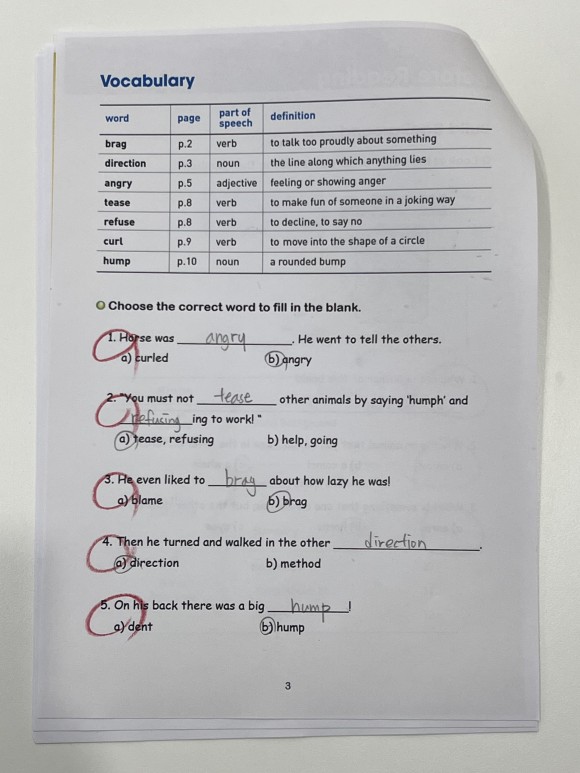 Vocabulary
word page part of speech definition
brag p.2 verb to talk too proudly about something
direction p.3 noun the line along which anything lies
angry p.5 adjective feeling or showing anger
tease p.8 verb to make fun of someone in a joking way
refuse p.8 verb to decline, to say no
curl p.9 verb to move into the shape of a circle
hump p.10 noun a rounded bump
Choose the correct word to fill in the blank.
1. Horse was angry. He went to tell the others.
a) curled b) angry
2. "You must not tease other animals by saying 'humph' and
refusing ing to work! "
a) tease, refusing b) help, going
3. He even liked to brag about how lazy he was!
a) blame b) brag
4. Then he turned and walked in the other direction.
a) direction b) method
5. On his back there was a big hump!
a) dent b) hump
3